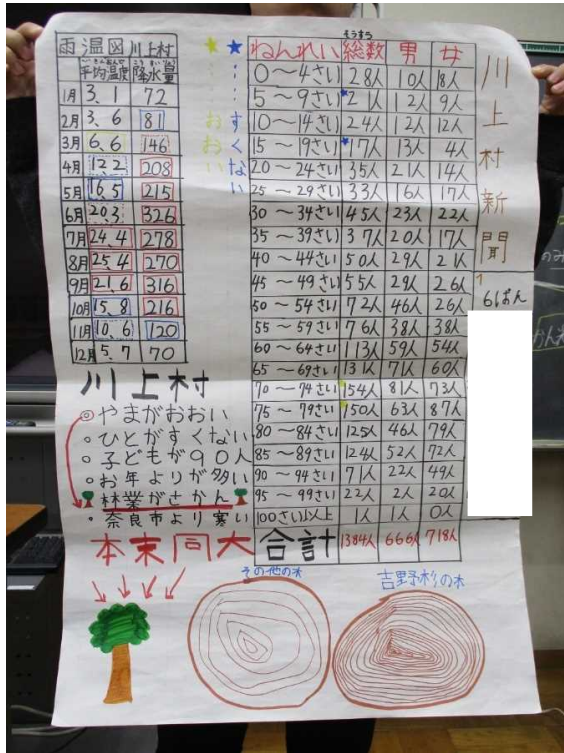 川上村新聞
6ぱん
雨温図 川上村
平均温度 降水量
へいきんおんど こうすいりょう
1月 3.1 72
2月 3.6 81
3月 6.6 146
4月 12.2 208
5月 16.5 215
6月 20.3 326
7月 24.4 278
8月 25.4 270
9月 21.6 316
10月 15.8 216
11月 10.6 120
12月 5.7 70
★…すくない
★…おおい
そうすう
ねんれい 総数 男 女
0〜4さい 28人 10人 18人
5〜9さい ★21人 12人 9人
10〜14さい 24人 12人 12人
15〜19さい ★17人 13人 4人
20〜24さい 35人 21人 14人
25〜29さい 33人 16人 17人
30〜34さい 45人 23人 22人
35〜39さい 37人 20人 17人
40〜44さい 50人 29人 21人
45〜49さい 55人 29人 26人
50〜54さい 72人 46人 26人
55〜59さい 76人 38人 38人
60〜64さい 113人 59人 54人
65〜69さい 131人 71人 60人
70〜74さい 154人 81人 73人
75〜79さい 150人 63人 87人
80〜84さい 125人 46人 79人
85〜89さい 124人 52人 72人
90〜94さい 71人 22人 49人
95〜99さい 22人 2人 20人
100さい以上 1人 1人 0人
合計 1384人 666人 718人
川上村
◎やまがおおい
。ひとがすくない
。子どもが90人
。お年よりが多い
林業がさかん
・奈良市より寒い
本末同大
その他の木
吉野杉の木